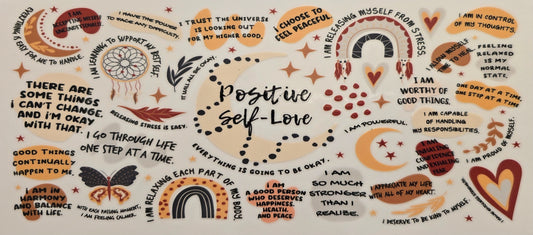 I AM
ACCEPTING MYSELF
UNCONDITIONALLY.
GOD FOR ME TO HANDLE.
I HAVE THE POWER
TO HACK ANY DIFFICULTY.
I TRUST THE UNIVERSE
IS LOOKING OUT
FOR MY HIGHER GOOD.
I CHOOSE TO
FEEL PEACEFUL.
I AM RELEASING MYSELF FROM STRESS.
I AM IN CONTROL
OF MY THOUGHTS.
I AM LEARNING TO SUPPORT MY BEST SELF.
IT WILL ALL BE OKAY.
FEELING
RELAXED IS
MY NORMAL
STATE.
THERE ARE
SOME THINGS
I CAN'T CHANGE,
AND I'M OKAY
WITH THAT.
RELEASING STRESS IS EASY.
Positive
Self-Love
I AM
WORTHY OF
GOOD THINGS.
ONE DAY AT A TIME.
ONE STEP AT A TIME
I GO THROUGH LIFE
ONE STEP AT A TIME.
I AM POWERFUL.
I AM CAPABLE
OF HANDLING
MY RESPONSIBILITIES.
GOOD THINGS
CONTINUALLY
HAPPEN TO ME.
EVERYTHING IS GOING TO BE OKAY.
I AM
INHALING
CONFIDENCE
AND EXHALING
FEAR.
I AM PROUD OF MYSELF.
I AM IN
HARMONY
AND BALANCE
WITH LIFE.
WITH EACH PASSING MOMENT,
I AM FEELING CALMER.
I AM RELAXING EACH PART OF MY BODY.
I AM
A GOOD PERSON
WHO DESERVES
HAPPINESS,
HEALTH,
AND PEACE
I AM
SO MUCH
STRONGER
THAN I
REALISE.
I APPRECIATE MY LIFE
WITH ALL OF MY HEART.
I DESERVE TO BE KIND TO MYSELF.